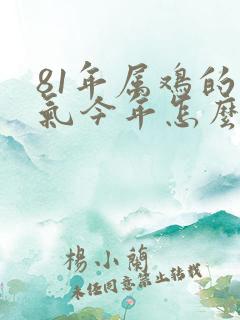 81年属鸡的
氣今年怎麼
楊小蘭
未经同意禁止转载